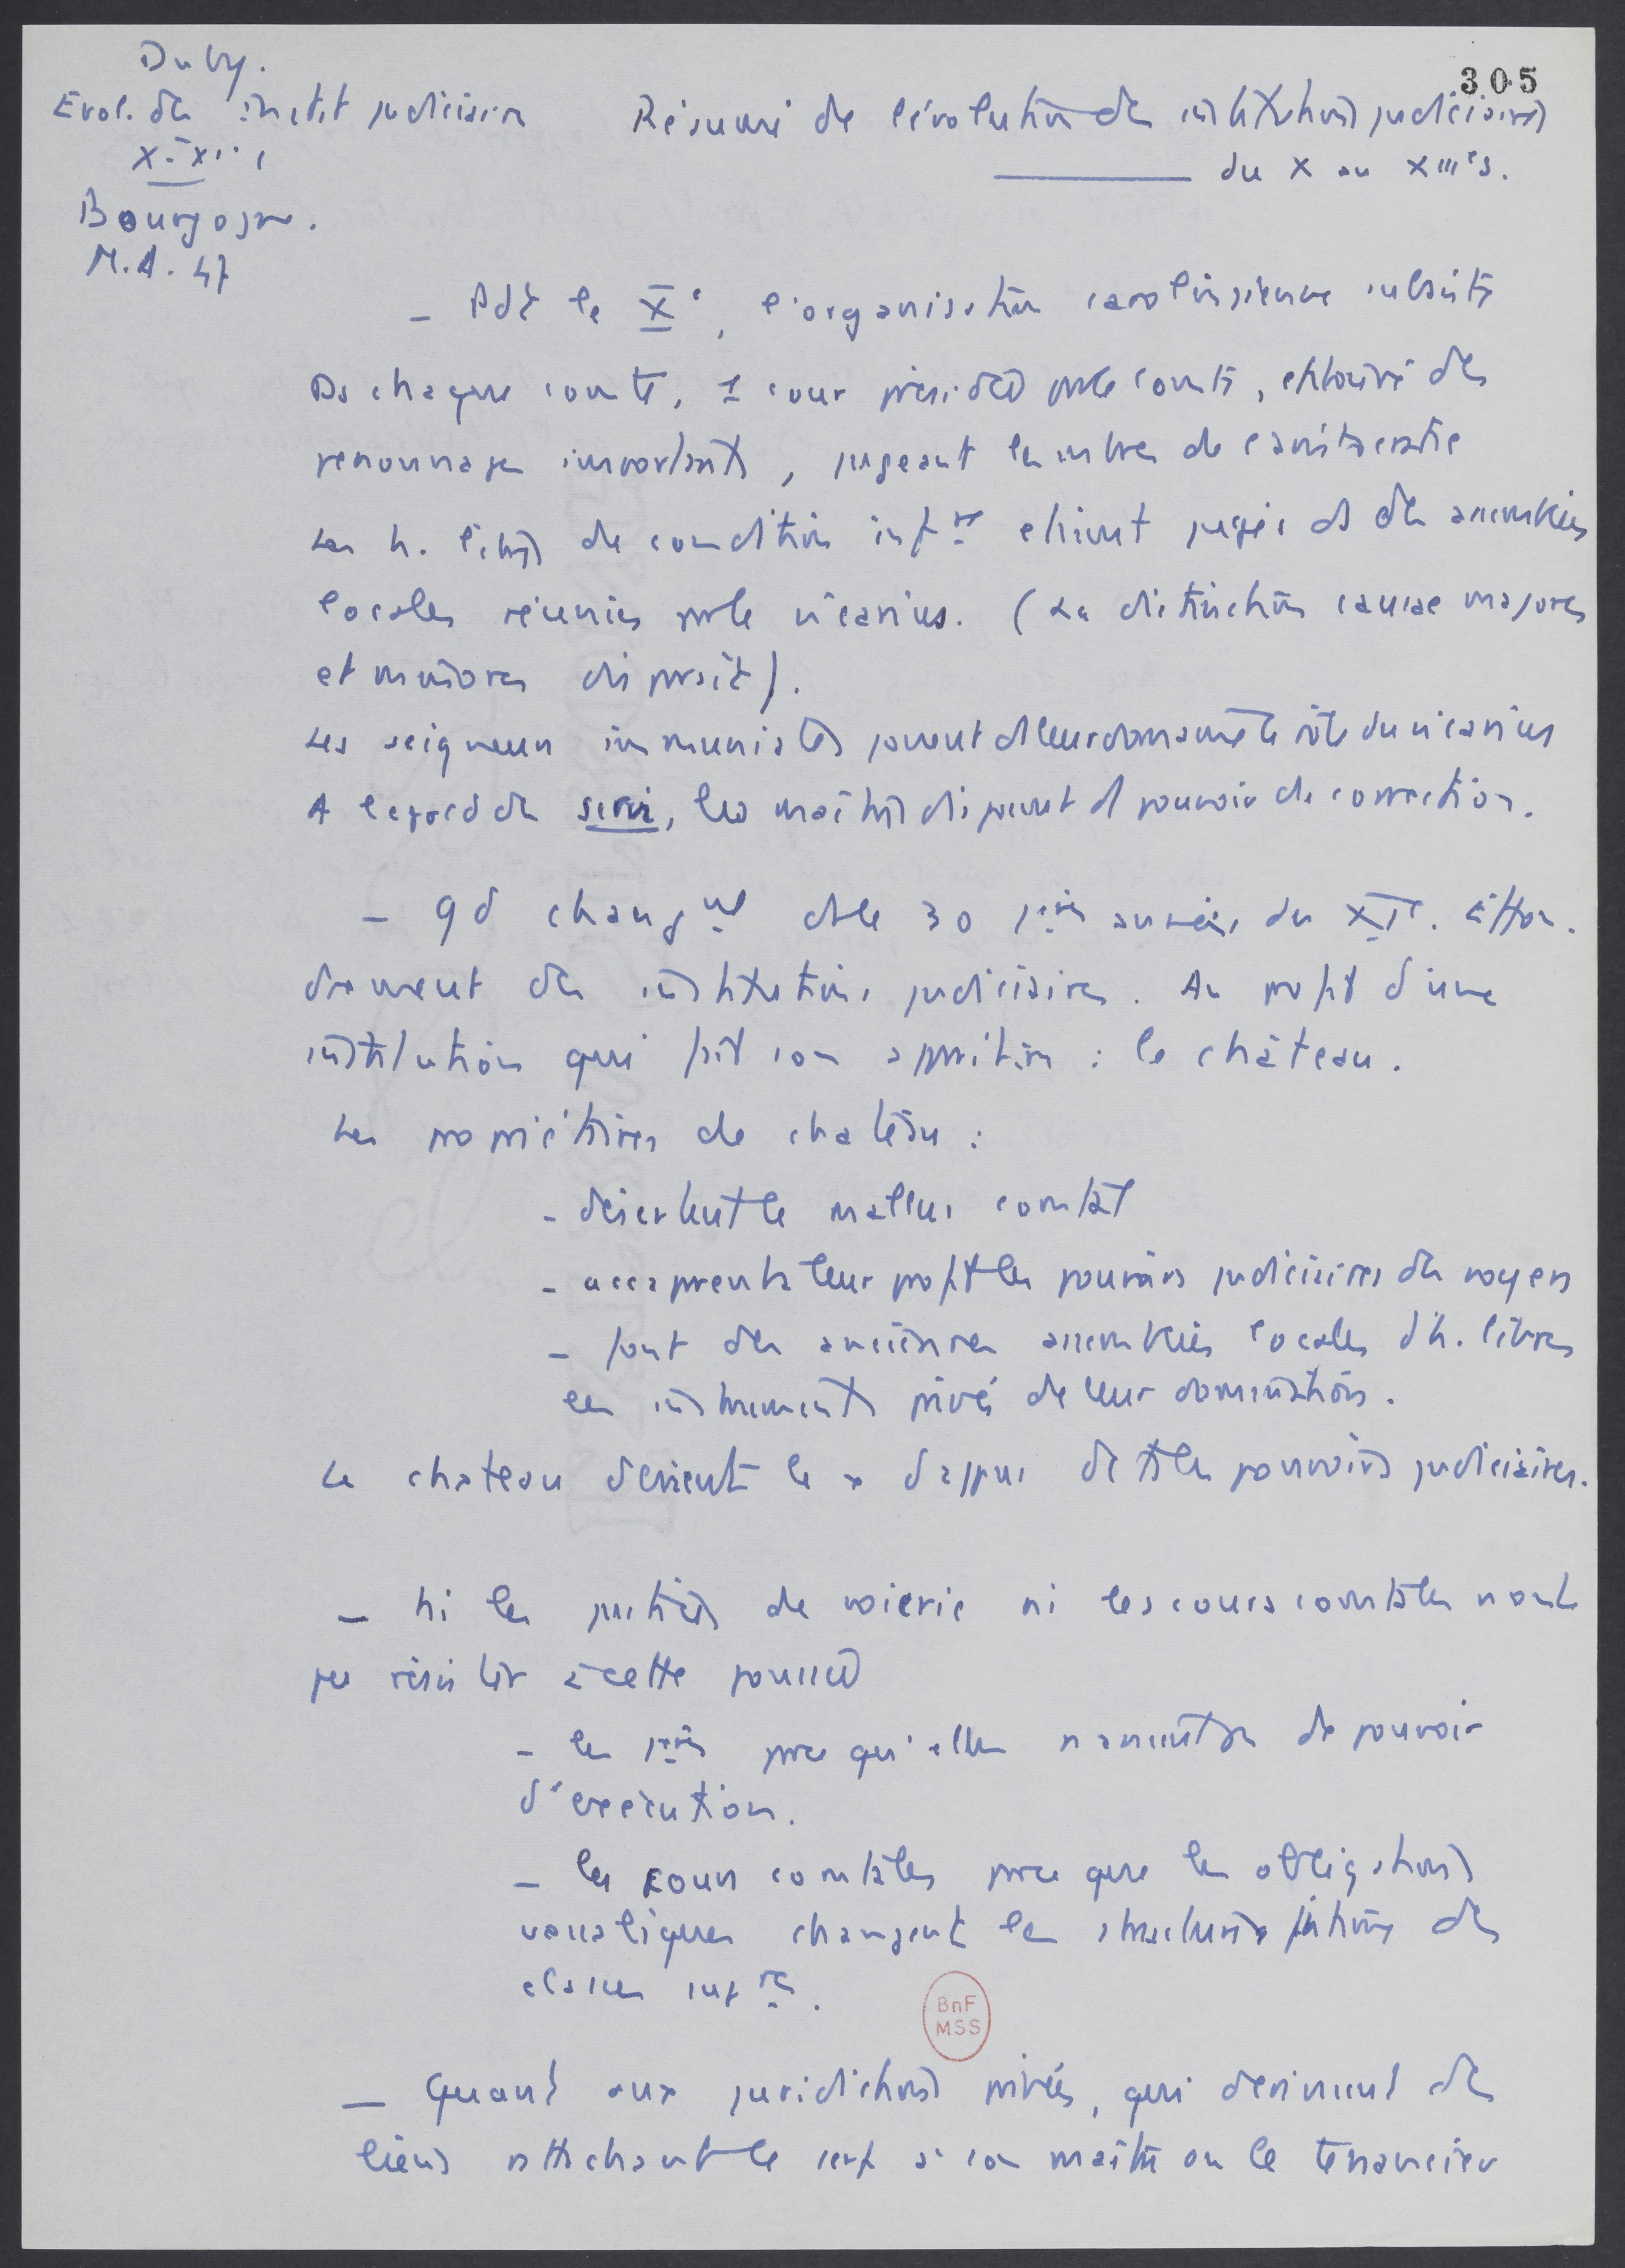 Duby.
Evol. des instit judiciaires
X-XIII
Bourgogne.
M.A. 47
305
Résumé de l'évolution des institutions judiciaires
du X au XIIIe s.
- Pdt le Xe, l'organisation carolingienne subsiste
Ds chaque comté, 1 cour présidée par le comte, entouré des
personnages importants, jugeant les mbres de l'aristocratie
Les h. libres de condition infre étaient jugés ds des assemblées
locales réunies par le vicarius. (La distinction causae majores
et minores disparait).
Les seigneurs immunistes jouent ds leur domaine le rôle du vicarius
A l'égard des servi, les maîtres disposent d pouvoir de correction.
- gd changmt ds les 30 1ères années du XIe. Effon-
drement des institutions judiciaires. Au profit d'une
institution qui fait son apparition : le château.
Les propriétaires de château :
- désertent le mallus comtal
- accaparent à leur profit les pouvoirs judiciaires des voyers
- font des anciennes assemblées locales d'h. libres
les instruments privés de leur domination.
Le chateau devient le x d'appui de ts les pouvoirs judiciaires.
- Ni les justices de voierie ni les cours comtales n'ont
pu résister à cette poussée
- les 1ères parce qu'elles n'avaient pas de pouvoir
d'exécution.
- les cours comtales parce que les obligations
vassaliques changent les structures intimes des
classes supres.
- Quant aux juridictions privées, qui dérivaient des
liens attachant le serf à son maître ou le tenancier
BnF
MSS